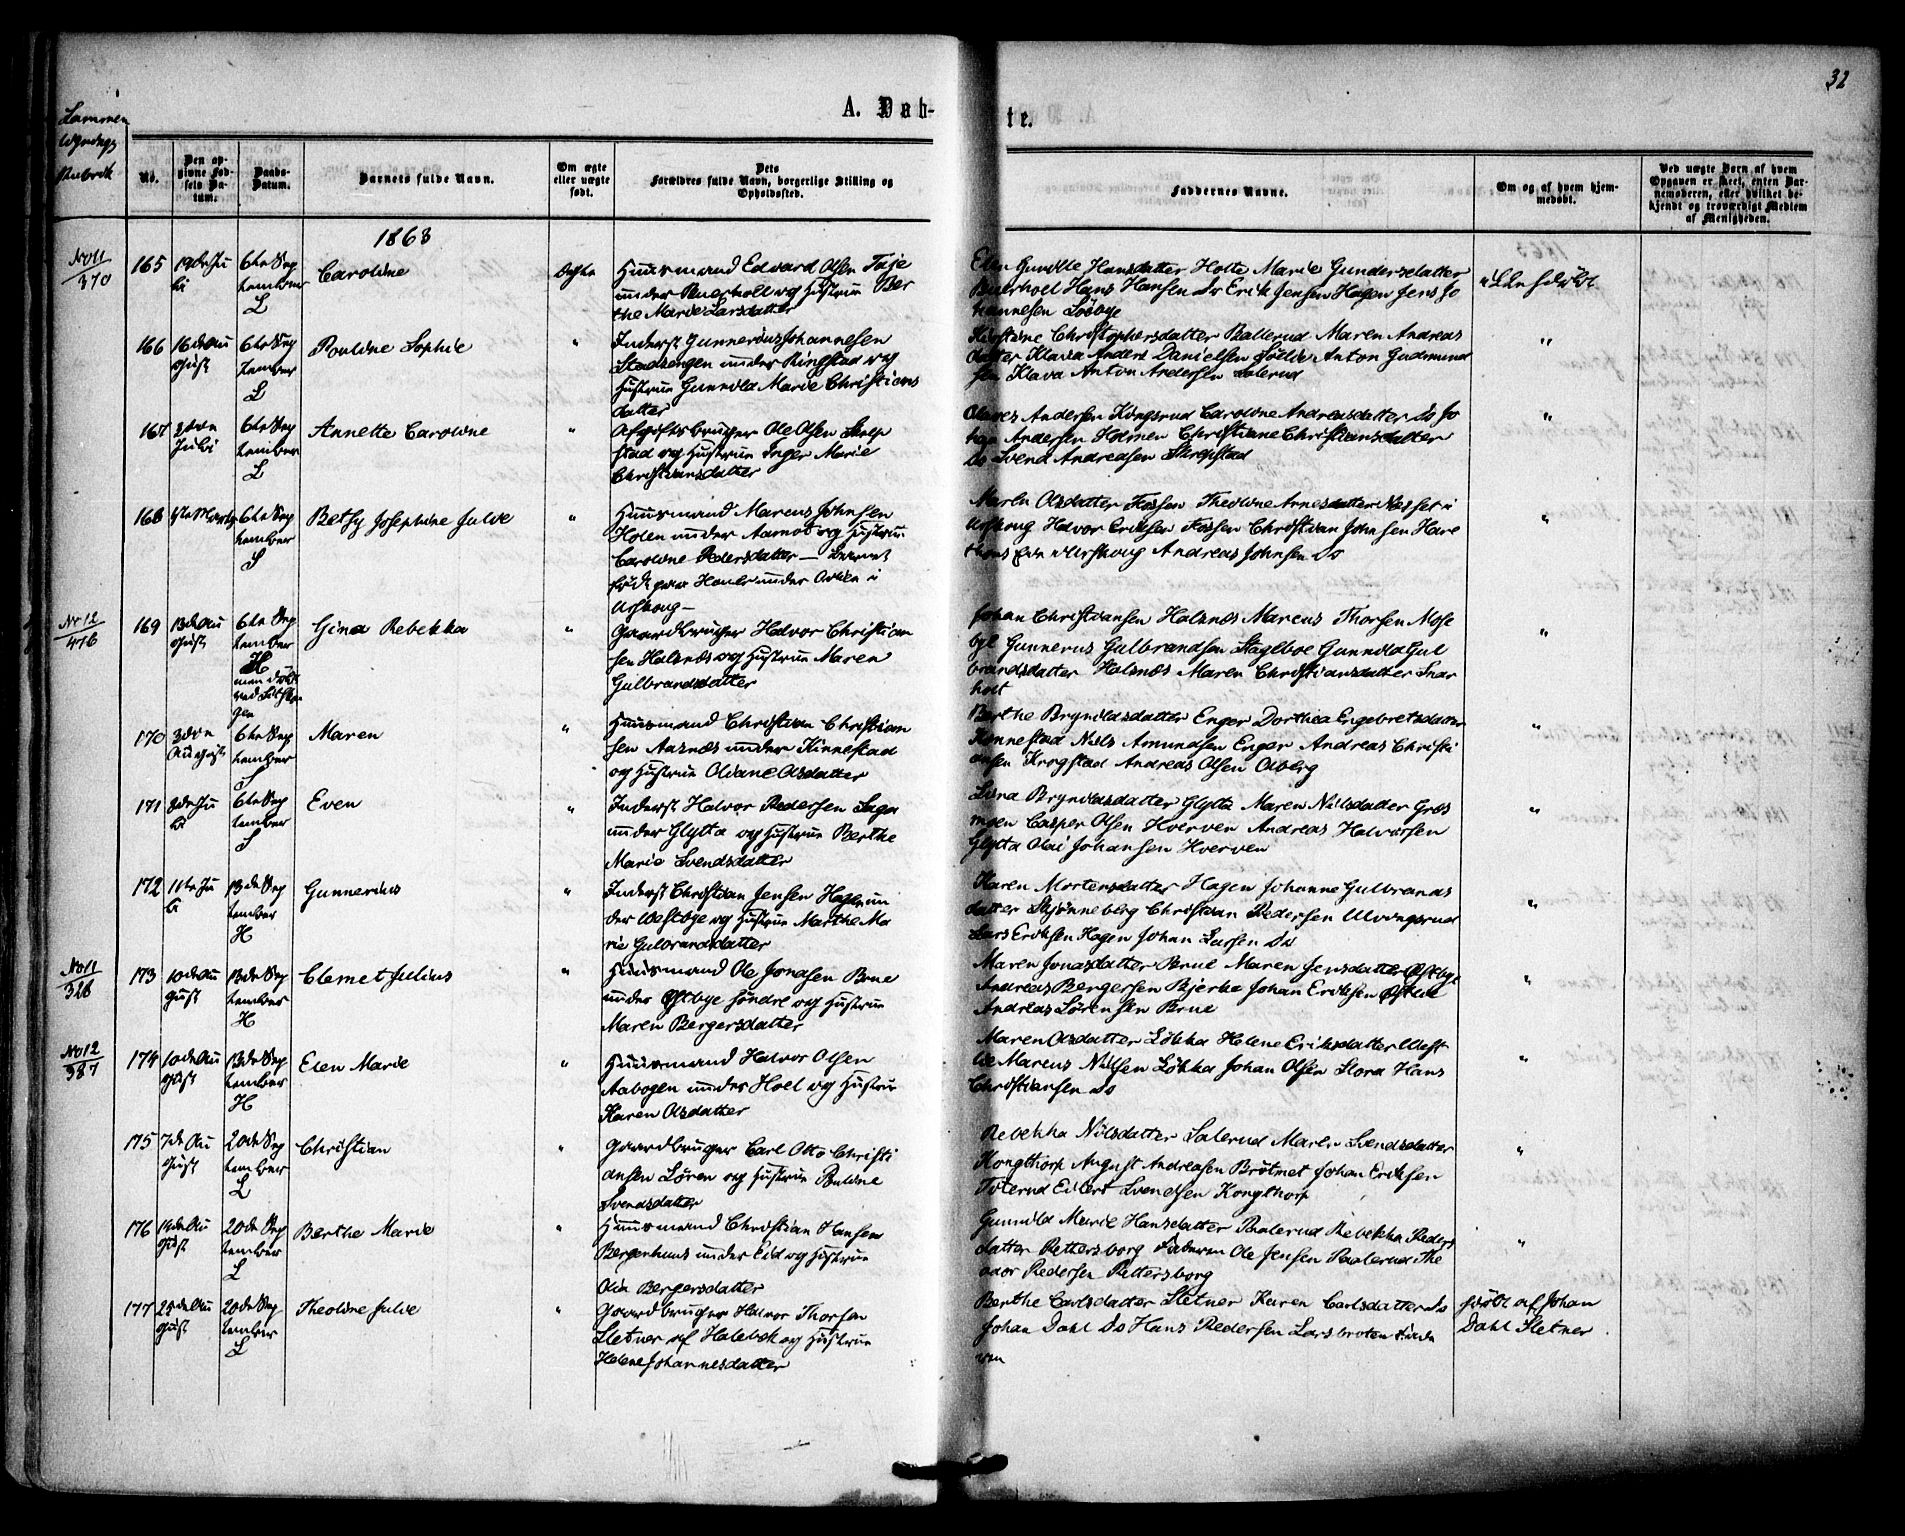 32
A. Døb-
te.
Sammen
lignings
rubrik
No.
Den op-
givne Fød-
sels Da-
tum.
Daabs-
Datum.
Barnets fulde Navn.
Om ægte
eller uægte
født.
Dets
Forældres fulde Navn, borgerlige Stilling og
Opholdssted.
Faddernes Navne.
Om og af hvem hjem-
medøbt.
Ved uægte Børn af hvem
Opgaven er skeet, enten Bar-
nemoderen, eller hvilket be-
kjendt og troværdigt Medlem
af Menigheden.
1863
No 11
370
165
19de Ju
li
6te Sep
tember
L
Caroline
Ægte
Huusmand Edvard Olsen Taje
under Buerholl og Hustrue Ber
the Marie Larsdatter
Elen Gunilde Hansdatter Holte Marie Gundersdatter
Buerholl Hans Hansen Do Erik Jensen Hagen Jens Jo
hannesen Løsbye
166
16de Au
gust
6te Sep
tember
L
Pouline Sophie
"
Inderst Gunnerius Johannesen
Stadsengen under Ringstad og
Hustrue Gunnild Marie Christians
datter
Kirstine Christophersdatter Ballerud Maren Andreas
datter Klava Anders Danielsen Anton Gudmund
sen Klava Anton Andersen Lalerud
"
167
3die
Juli
6te Sep
tember
L
Annette Caroline
"
Afgiftsbruger Ole Olsen Skrep
stad og Hustrue Inger Marie
Christiansdatter
Olaves Andersen Kingsrud Caroline Andreasdatter Do Jo
han Andersen Holmen Christiane Christiansdatter
Do Svend Andreasen Skrepstad
"
168
Marts
6te Sep
tember
S
Betsy Josephine Julie
"
Huusmand Marcus Johnsen
Holen under Aamot og Hustrue
Caroline Pedersdatter — Barnet
født paa under i
Urskoug —
Maren Olsdatter Fossen Theoline Arnesdatter Nesset i
Urskoug Halvor Eriksen Fossen Christian Johnsen Hare
Urskoug Andreas Johnsen Do
"
No 12
476
169
13de Au
gust
6te Sep
tember
H
men døbt
ved
Gina Rebekka
"
Gaardbruger Halvor Christian
sen Halsnæs og Hustrue Maren
Gulbrandsdatter
Johan Christiansen Halsnæs Marcus Thorsen Mose
bye Gunnerus Gulbrandsen Gunnild Gul
brandsdatter Halsnæs Maren Christiansdatter Snar
holt
"
170
3die
August
6te Sep
tember
S
Maren
"
Huusmand Christian Christian
sen Aasnæs under Kinnestad
og Hustrue Oliane Olsdatter
Berthe Brynildsdatter Enger Dorthea Engebretsdatter
Kinnestad Nils Amundsen Enger Andreas Christi
ansen Krogstad Andreas Olsen Olberg
"
171
8de Ju
li
6te Sep
tember
S
Even
"
Inderst Halvor Pedersen Saga
under Glytta og Hustrue Berthe
Marie Svendsdatter
Lina Brynildsdatter Glytta Maren Nilsdatter Gras
moen Casper Olsen Hverven Andreas Halvorsen
Glytta Olai Johansen Hverven
"
172
11te Ju
li
13de Sep
tember
H
Gunnerius
"
Inderst Christian Jensen Hagen un
der Westbye og Hustrue Marthe Ma
rie Gulbrandsdatter
Karen Mortensdatter Hagen Johanne Gulbrands
datter Skjønneberg Christian Pedersen Ulvingsrud
Lars Eriksen Hagen Johan Larsen Do
"
No 11
326
173
10de Au
gust
13de Sep
tember
H
Clemet Julius
"
Huusmand Ole Jonasen Brue
under Østbye søndre og Hustrue
Maren Bergersdatter
Maren Jonasdatter Brue Maren Jensdatter Østbye
Andreas Bergersen Bjerke Johan Eriksen Østbye
Andreas Lørensen Brue
"
No 12
387
174
10de Au
gust
13de Sep
tember
H
Elen Marie
"
Huusmand Halvor Olsen
Aabogen under Holl og Hustrue
Karen Olsdatter
Maren Olsdatter Løkka Helene Eriksdatter West
lie Marcus Nilsen Løkka Johan Olsen Slora Hans
Christiansen Do
"
175
7de Au
gust
20de Sep
tember
L
Christian
"
Gaardbruger Carl Otto Christi
ansen Løren og Hustrue Pauline
Svendsdatter
Rebekka Nilsdatter Lalerud Maren Svendsdatter
Kongthorp August Andreasen Brøtmet Johan Eriksen
Toterud Edvert Svendsen Kongthorp
"
176
19de Au
gust
20de Sep
tember
L
Berthe Marie
"
Huusmand Christian Hansen
Bergerhuus under Eid og Hustrue
Olia Bergersdatter
Gunnild Marie Hansdatter Paalerud Rebekka Peders
datter Pettersborg Faderen Ole Jensen Paalerud The
odor Pedersen Pettersborg
"
177
25de Au
gust
20de Sep
tember
L
Theoline Julie
"
Gaardbruger Halvor Thorsen
Sletner af Halebek og Hustrue
Helene Johannesdatter
Berthe Carlsdatter Sletner Karen Carlsdatter Do
Johan Dahl Do Hans Pedersen Larsbroten Fade
ren
Døbt af Johan
Dahl Sletner